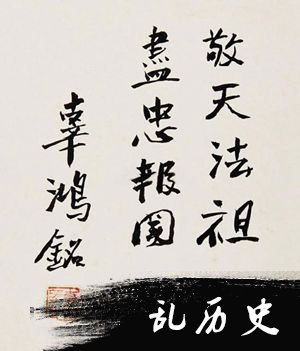 敬天法祖
盡忠報國
辜鴻銘
乱历史